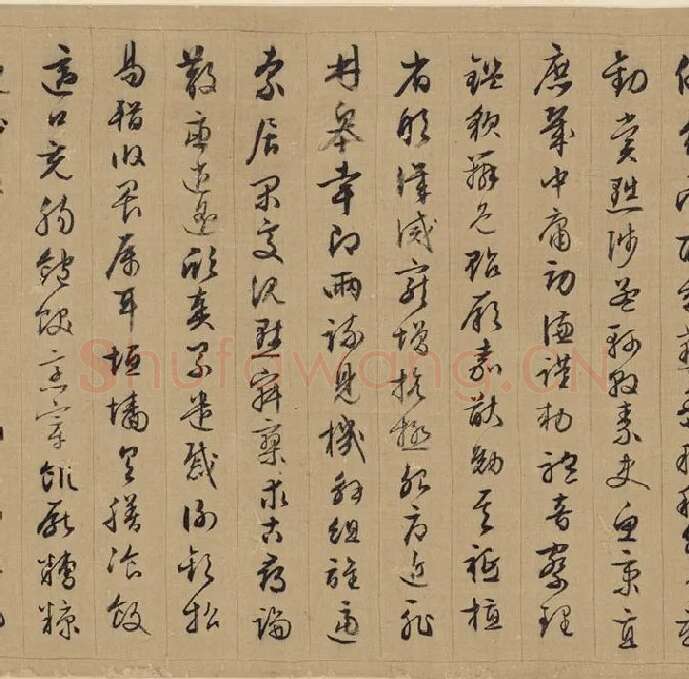 勸賞黜陟孟軻敦素史魚秉直
庶幾中庸勞謙謹勅聆音察理
鑑貌辨色貽厥嘉猷勉其祗植
省躬譏誡寵增抗極殆辱近恥
林皋幸即兩疏見機解組誰逼
索居閒處沉默寂寥求古尋論
散慮逍遙欣奏累遣慼謝歡招
易輶攸畏屬耳垣墻具膳飡飯
適口充腸飽飫烹宰飢厭糟糠
Shufawang.CN